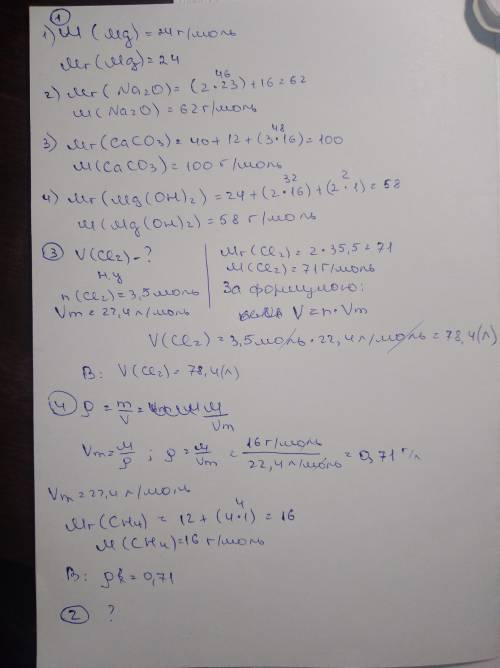 1
1) M (Mg) = 24 г/моль
Mr (Mg) = 24
46
2) Mr (Na2O) = (2·23) + 16 = 62
M (Na2O) = 62 г/моль
48
3) Mr (CaCO3) = 40 + 12 + (3·16) = 100
M (CaCO3) = 100 г/моль
32 2
4) Mr (Mg(OH)2) = 24 + (2·16) + (2·1) = 58
M (Mg(OH)2) = 58 г/моль
3 V(Cl2) - ?
н.у
n (Cl2) = 3,5 моль
Vm = 22,4 л/моль
Mr (Cl2) = 2·35,5 = 71
M (Cl2) = 71 г/моль
За формулою:
V = n·Vm
V(Cl2) = 3,5 моль · 22,4 л/моль = 78,4 (л)
В: V(Cl2) = 78,4 (л)
4 ρ = m/V = M/Vm
Vm = M/ρ ; ρ = M/Vm = 16 г/моль / 22,4 л/моль = 0,71 г/л
Vm = 22,4 л/моль
4
Mr (CH4) = 12 + (4·1) = 16
M (CH4) = 16 г/моль
В: ρ = 0,71
2 ?